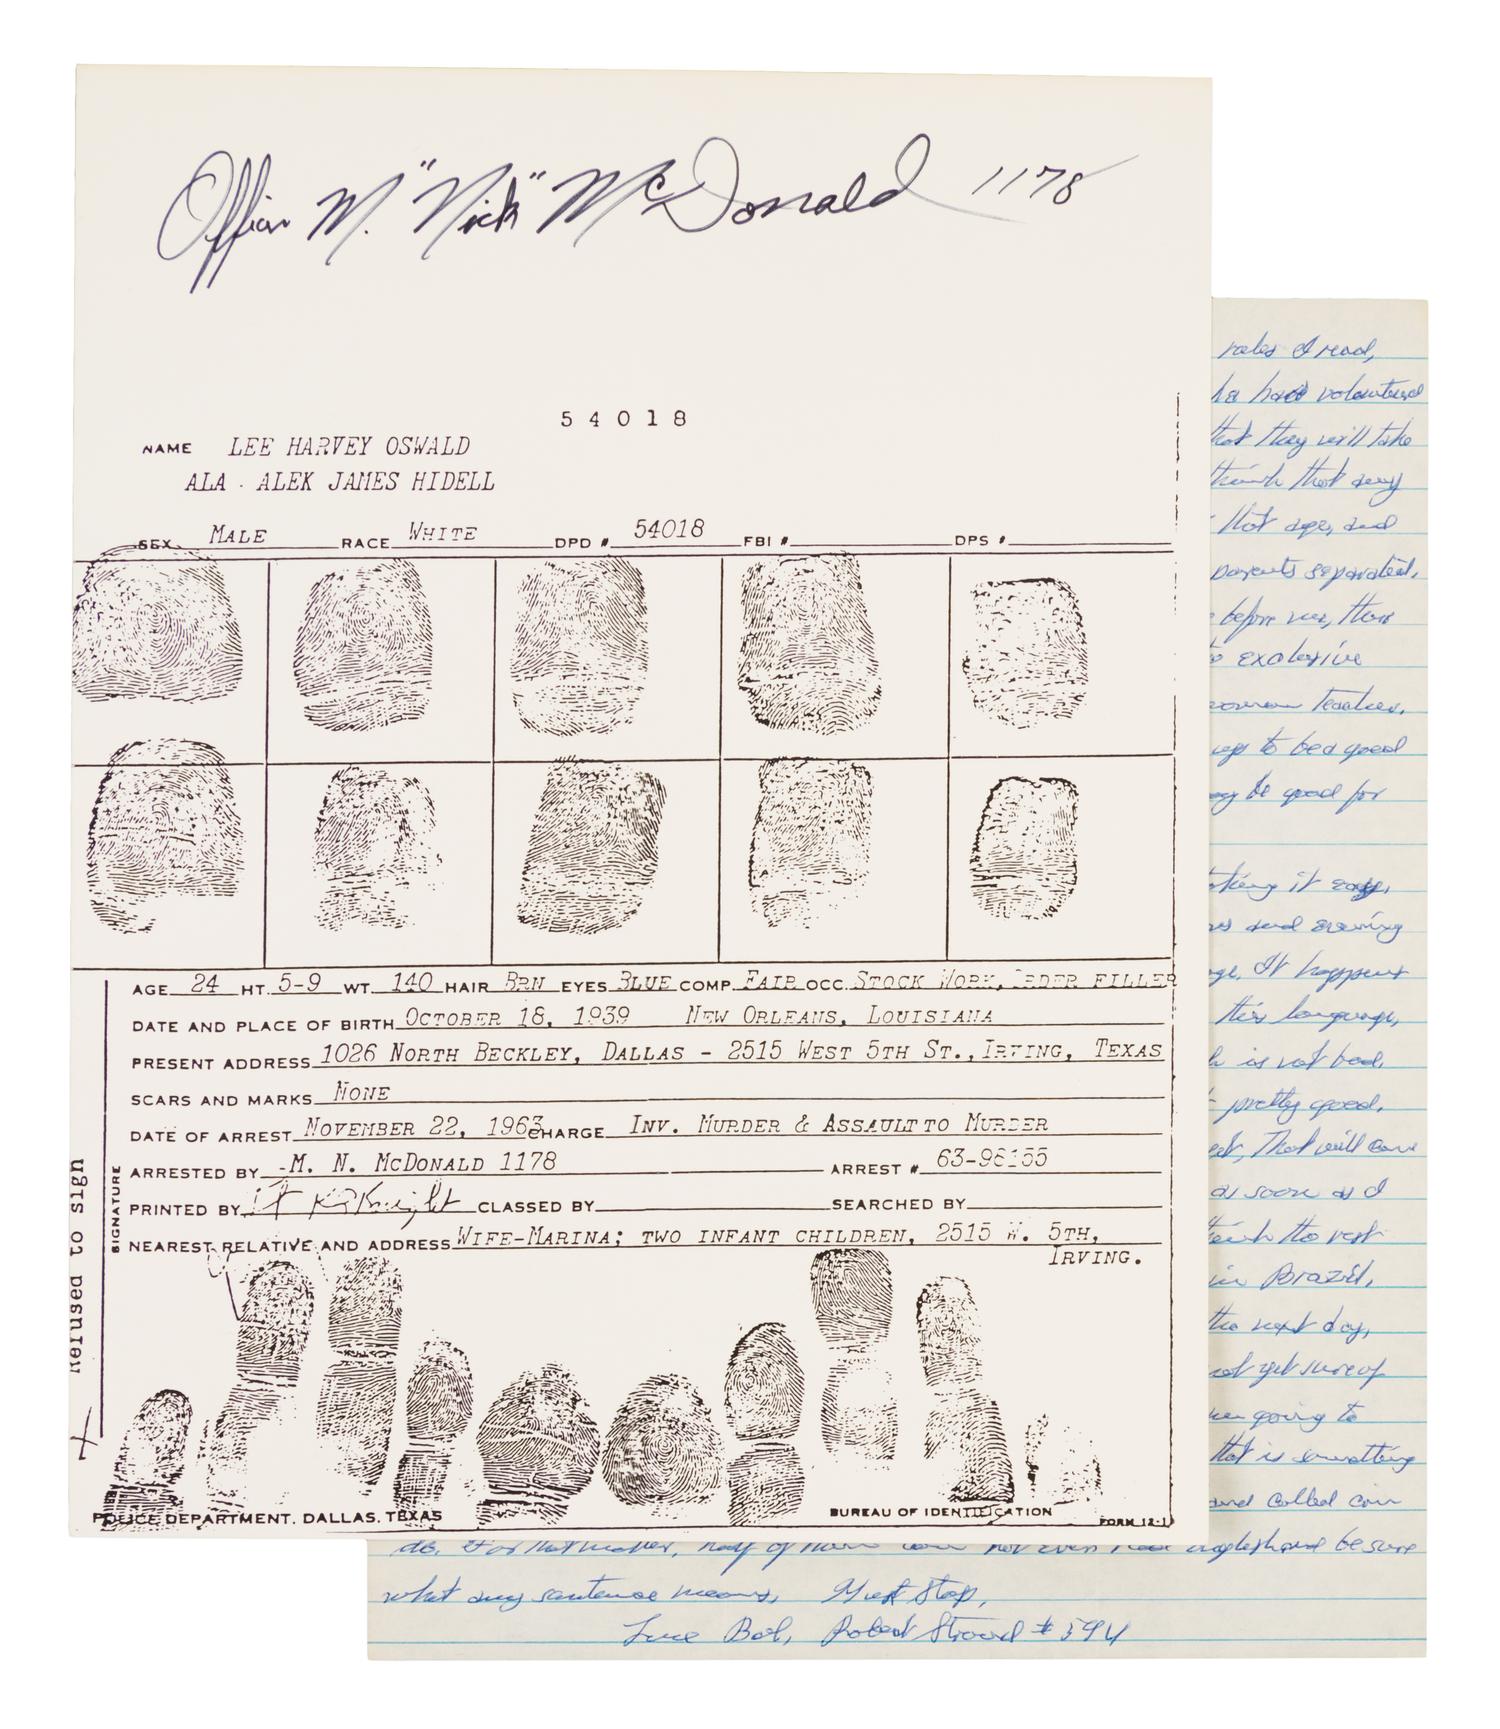 Officer M. "Nick" McDonald 1178
54018
NAME LEE HARVEY OSWALD
ALA. ALEK JAMES HIDELL
SEX MALE RACE WHITE DPD # 54018 FBI # DPS #
AGE 24 HT. 5-9 WT. 140 HAIR BRN EYES BLUE COMP. FAIR OCC. STOCK WORK, ORDER FILLER
DATE AND PLACE OF BIRTH OCTOBER 18, 1939 NEW ORLEANS, LOUISIANA
PRESENT ADDRESS 1026 NORTH BECKLEY, DALLAS - 2515 WEST 5TH ST., IRVING, TEXAS
SCARS AND MARKS NONE
DATE OF ARREST NOVEMBER 22, 1963 CHARGE INV. MURDER & ASSAULT TO MURDER
ARRESTED BY M. N. MCDONALD 1178 ARREST #
PRINTED BY CLASSED BY SEARCHED BY
NEAREST RELATIVE AND ADDRESS WIFE-MARINA; TWO INFANT CHILDREN, 2515 W. 5TH,
IRVING.
SIGNATURE
Refused to sign
POLICE DEPARTMENT, DALLAS, TEXAS BUREAU OF IDENTIFICATION FORM
rules I read,
have volunteered
that they will take
think that any
that age, and
parents separated.
before me, than
to explosive
woman teacher.
up to be a good
may be good for
taking it easy,
and evening
It happens
this language,
is not bad.
pretty good.
That will come
as soon as I
the rest
in Brazil,
the next day,
not yet sure of
going to
that is something
and called
do. For that matter, half of them not even read and be sure
what any sentence means. Must Stop,
Luce Bob, Robert Stroud #594